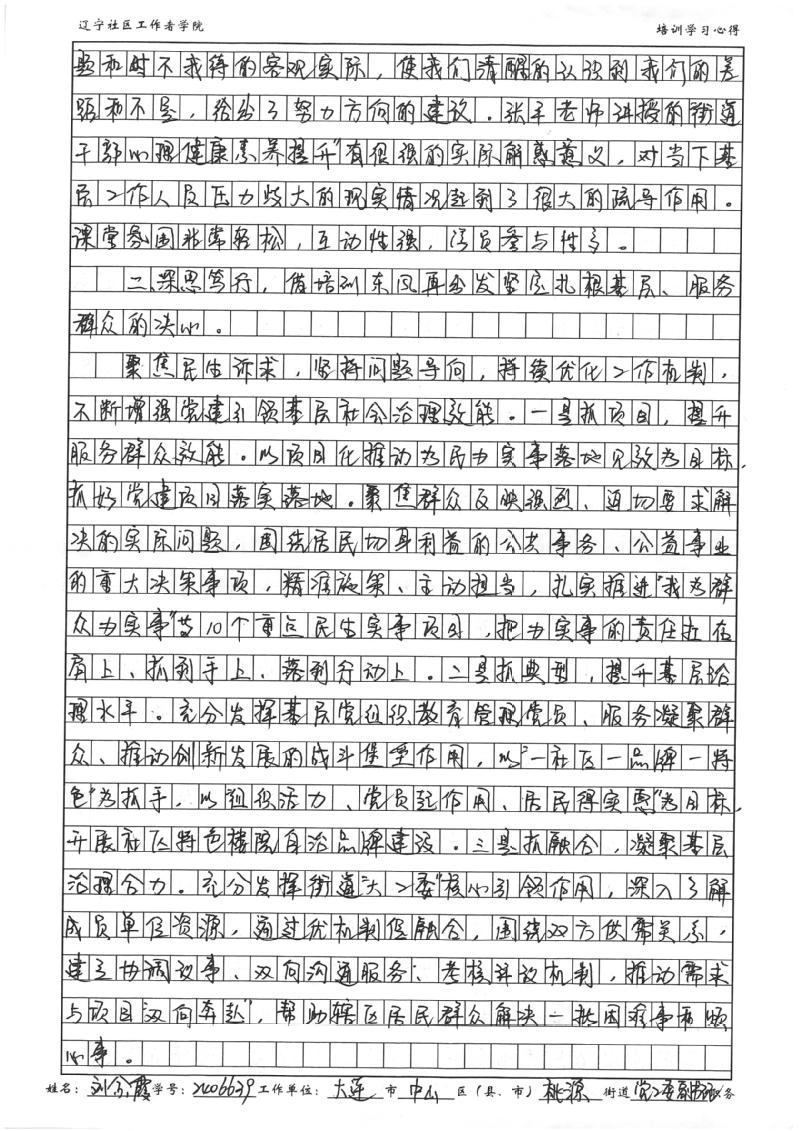 辽宁社区工作者学院 培训学习心得
题和时不我待的客观实际，使我们清醒的认识到我们的差
距和不足，给出了努力方向的建议。张平老师讲授的街道
干部心理健康素养提升"有很强的实际解惑意义，对当下基
层工作人员压力歧大的现实情况起到了很大的疏导作用。
课堂氛围非常轻松，互动性强，学员参与性多。
二、深思笃行，借培训东风再出发坚定扎根基层、服务
群众的决心。
聚焦民生诉求，坚持问题导向，持续优化工作机制，
不断增强党建引领基层社会治理效能。一是抓项目，提升
服务群众效能。以项目化推动为民办实事落地见效为目标，
抓好党建项目落实落地。聚焦群众反映强烈、迫切要求解
决的实际问题，围绕居民切身利益的公共事务、公益事业
的重大决策事项，精准施策、主动担当，扎实推进"我为群
众办实事"等10个重点民生实事项目，把办实事的责任扛在
肩上、抓到手上、落到行动上。二是抓典型，提升基层治
理水平。充分发挥基层党组织教育管理党员、服务凝聚群
众、推动创新发展的战斗堡垒作用，以"一社区一品牌一特
色"为抓手，以组织活力、党员起作用、居民得实惠"为目标，
开展社区特色楼院自治品牌建设。三是抓融合，凝聚基层
治理合力。充分发挥街道"大工委"核心引领作用，深入了解
成员单位资源，通过优机制促融合，围绕双方供需关系，
建立协调议事、双向沟通服务、考核评议机制，推动需求
与项目"双向奔赴"，帮助辖区居民群众解决一批困难事和烦
心事。
姓名：刘 霞 学号：2406639 工作单位：大连 市 中山 区（县、市） 桃源 街道 党工委副书记 务